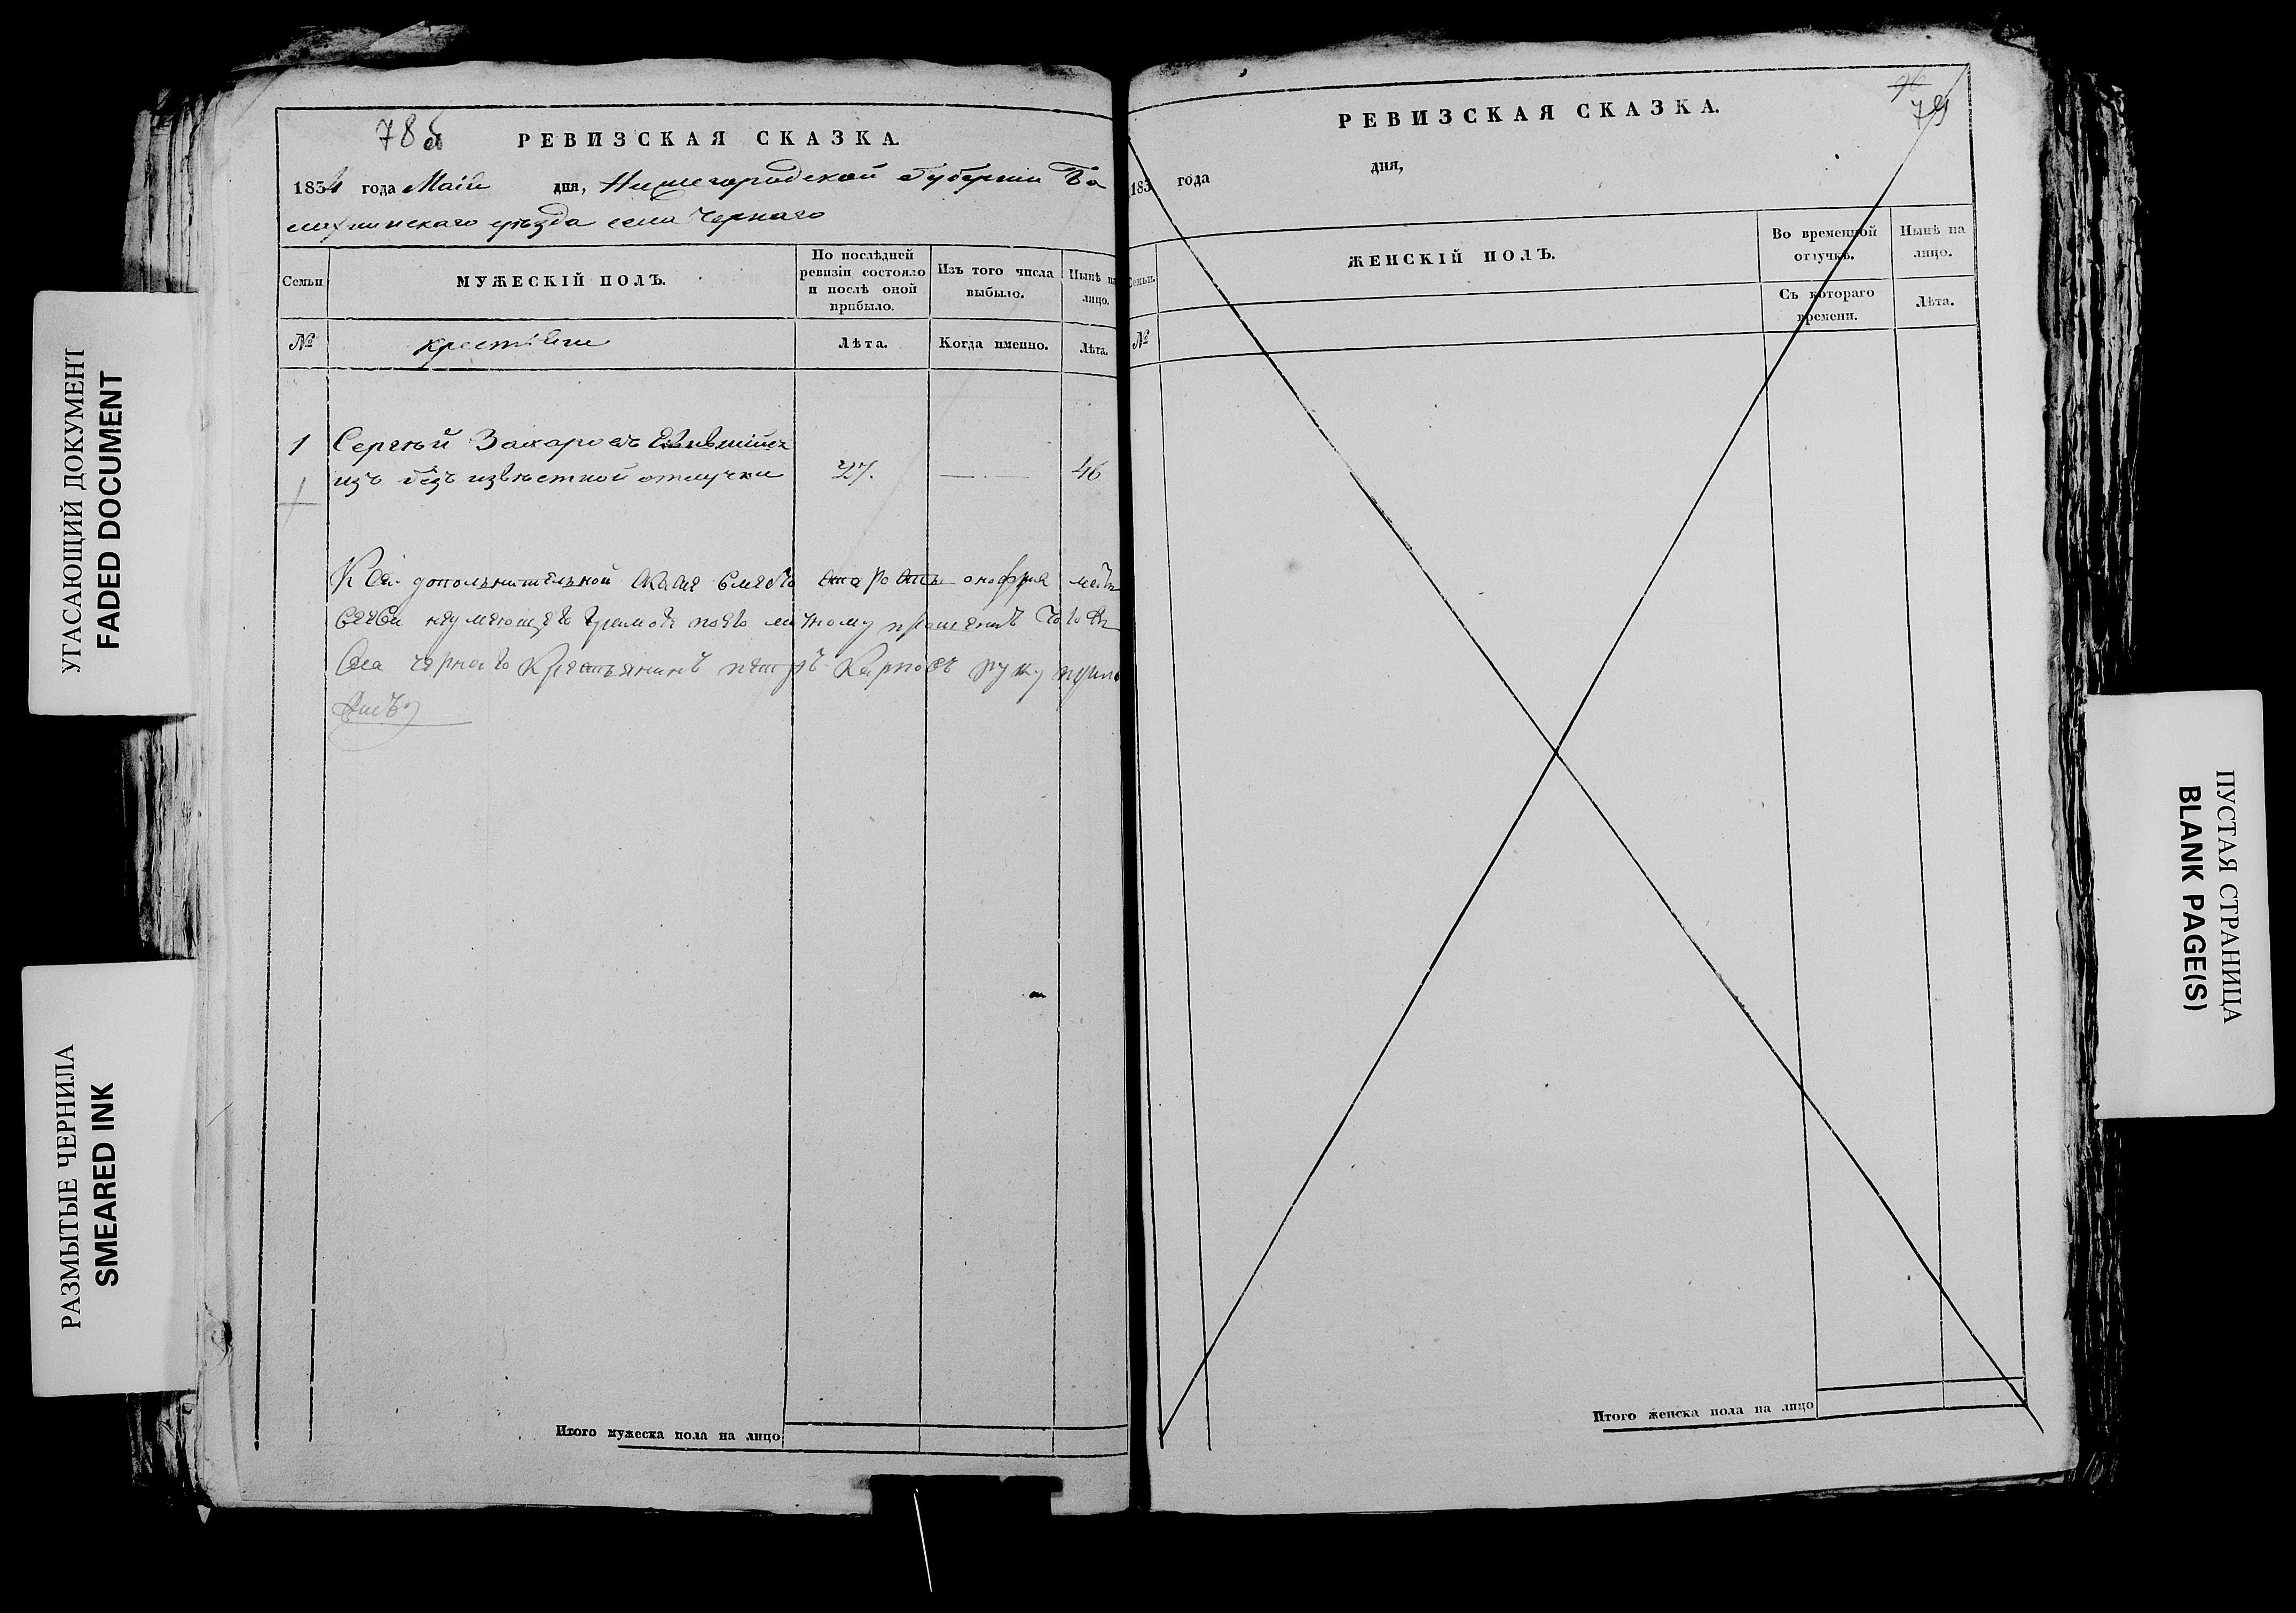 УГАСАЮЩИЙ ДОКУМЕНТ
FADED DOCUMENT
РАЗМЫТЫЕ ЧЕРНИЛА
SMEARED INK
78 об
РЕВИЗСКАЯ СКАЗКА.
1834 года Маія дня, Нижегородской Губерніи Ба
лахнинскаго уѣзда села Чернаго
Семьи
МУЖЕСКІЙ ПОЛЪ.
По послѣдней ревизіи состояло и послѣ оной прибыло.
Изъ того числа выбыло.
Нынѣ на лицо.
№
крестьяне
Лѣта.
Когда именно.
Лѣта.
1 Сергѣй Захаровъ явившійся
изъ безъ извѣстной отлучки 27. — 46
К сей дополнительной скаске вместо старосты онофрия мат
веева неумеющего грамоте по его личному прошению того ж
села черного Крестьянинъ петръ Карповъ руку прило
жилъ
79
РЕВИЗСКАЯ СКАЗКА.
183 года дня,
Семьи.
ЖЕНСКІЙ ПОЛЪ.
Во временной отлучкѣ.
Нынѣ на лицо.
Съ котораго времени.
Лѣта.
№
Итого мужеска пола на лицо
Итого женска пола на лицо
ПУСТАЯ СТРАНИЦА
BLANK PAGE(S)